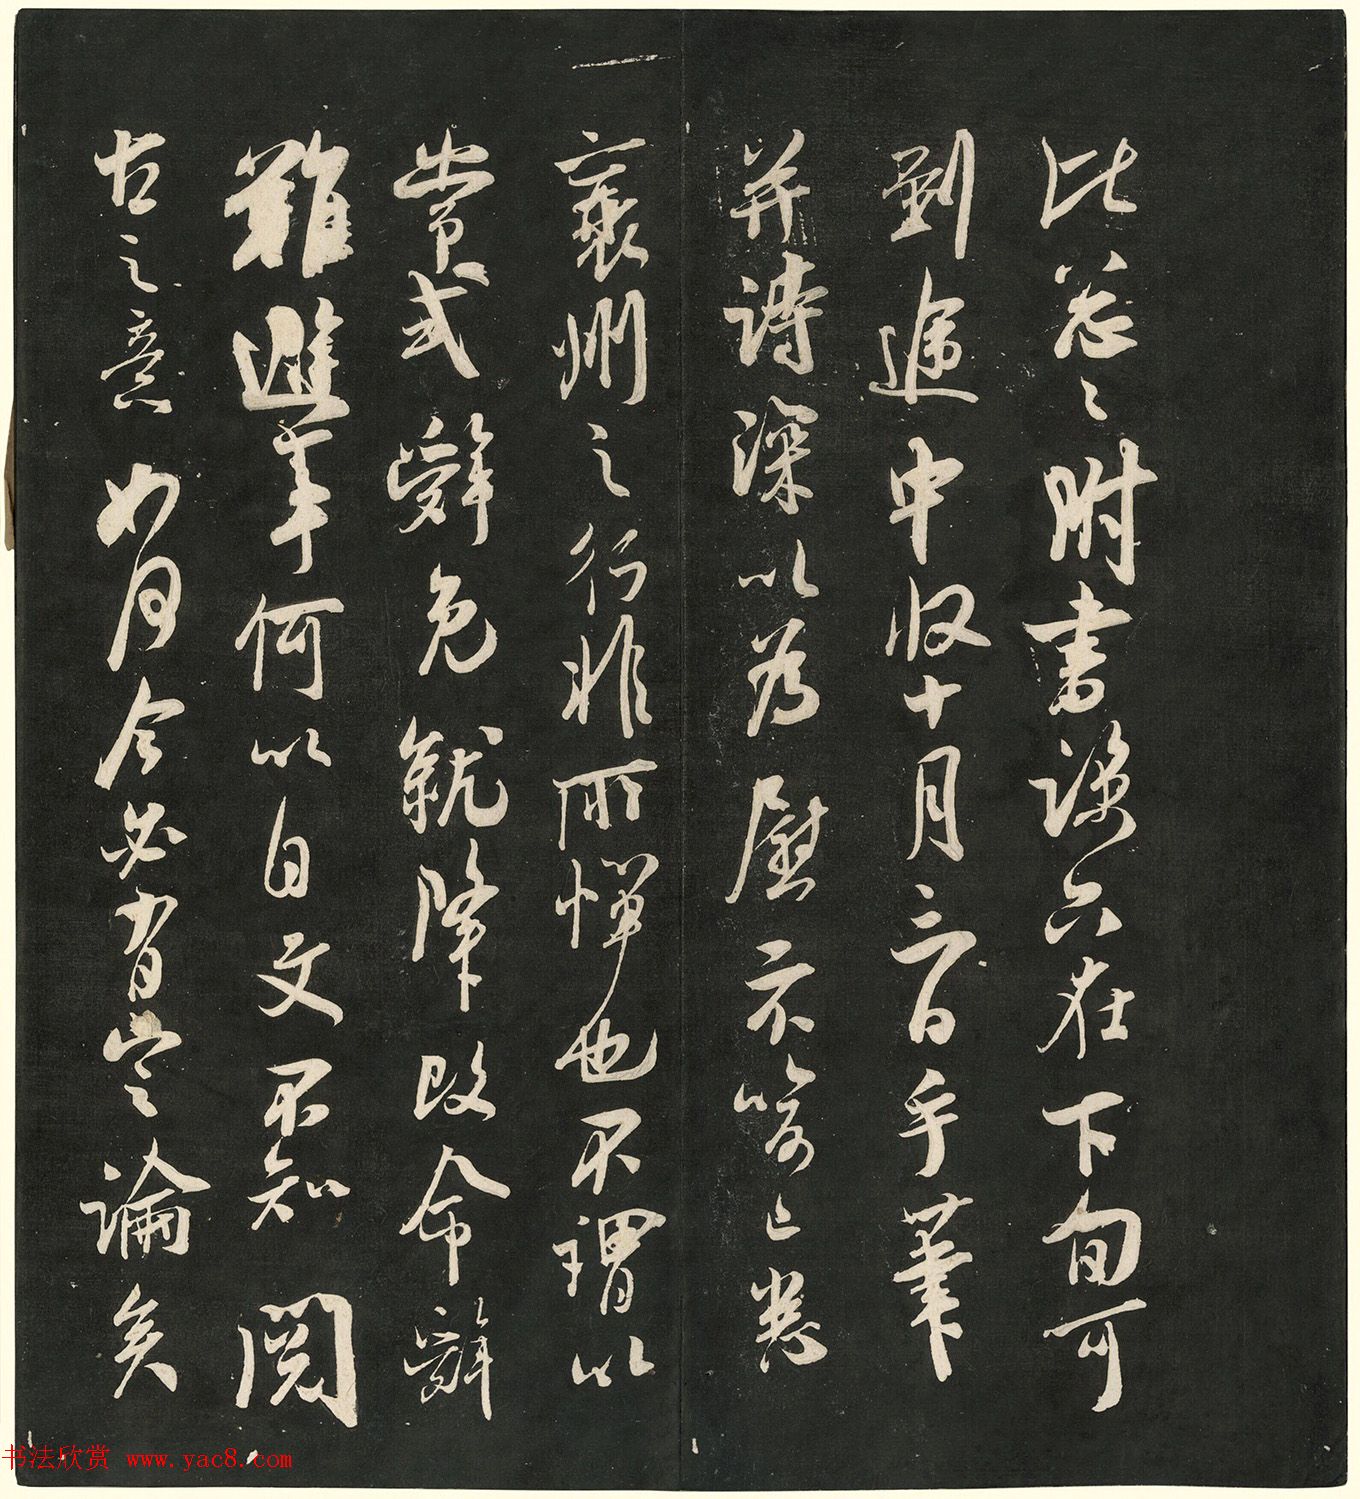 比忩〻附書諒只在下旬可
到途中収十月三日手筆
并詩深以為慰示喻已悉
襄州之行非所憚也不謂以
常式辭免就降改命辭
難避事何以自文不知閱
古之意如何今必有定論矣
书法欣赏 www.yac8.com